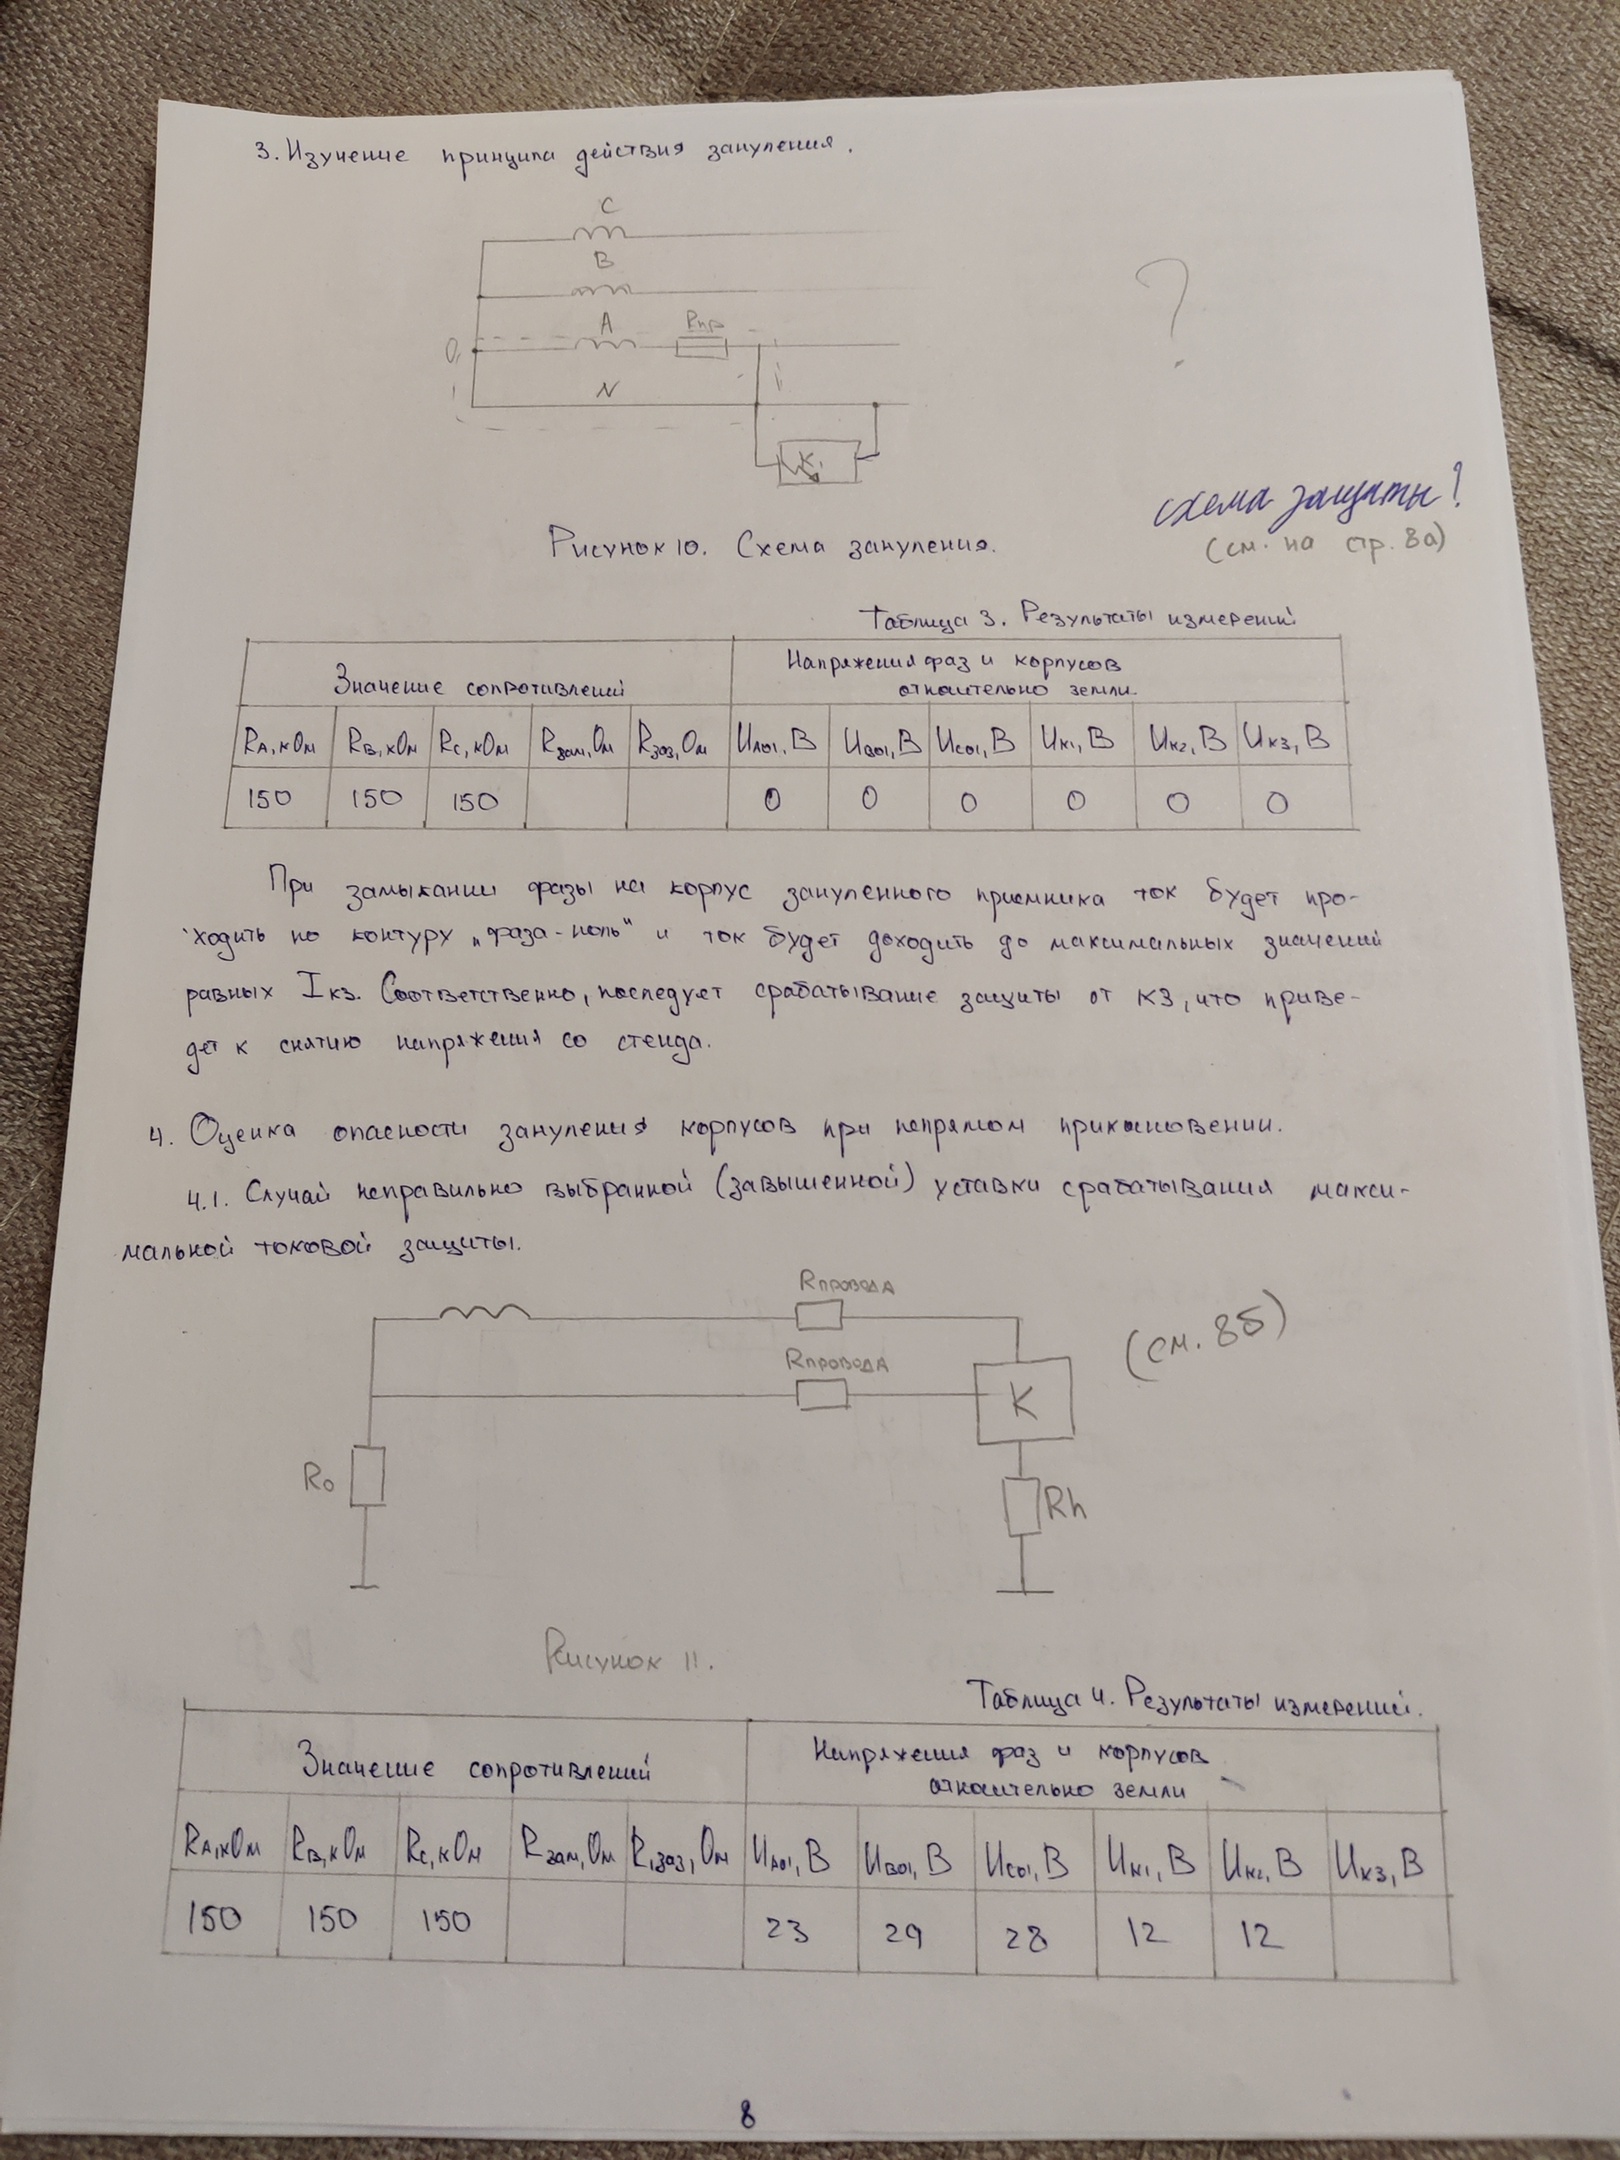 3. Изучение принципа действия зануления.
C
B
A
Rпр
0
N
K1
?
схема защиты!
(см. на стр. 8а)
Рисунок 10. Схема зануления.
Таблица 3. Результаты измерений
Значение сопротивлений
Напряжения фаз и корпусов
относительно земли.
RА, кОм RВ, кОм RС, кОм Rзам, Ом Rзаз, Ом UА01, В UВ01, В UС01, В UК1, В UК2, В UК3, В
150 150 150 0 0 0 0 0 0
При замыкании фазы на корпус зануленного приемника ток будет про-
ходить по контуру „фаза-ноль" и ток будет доходить до максимальных значений
равных Iкз. Соответственно, последует срабатывание защиты от КЗ, что приве-
дет к снятию напряжения со стенда.
4. Оценка опасности зануления корпусов при непрямом прикосновении.
4.1. Случай неправильно выбранной (завышенной) уставки срабатывания макси-
мальной токовой защиты.
Rпровода
Rпровода
(см. 8б)
K
R0
Rh
Рисунок 11.
Таблица 4. Результаты измерений.
Значение сопротивлений
Напряжения фаз и корпусов
относительно земли
RА, кОм RВ, кОм RС, кОм Rзам, Ом Rзаз, Ом UА01, В UВ01, В UС01, В UК1, В UК2, В UК3, В
150 150 150 23 29 28 12 12
8